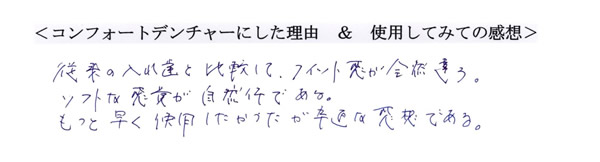 ＜コンフォートデンチャーにした理由　＆　使用してみての感想＞
従来の入れ歯と比較して、フィット感が全然違う。
ソフトな感覚が自然体である。
もっと早く使用したかったが率直な感想である。